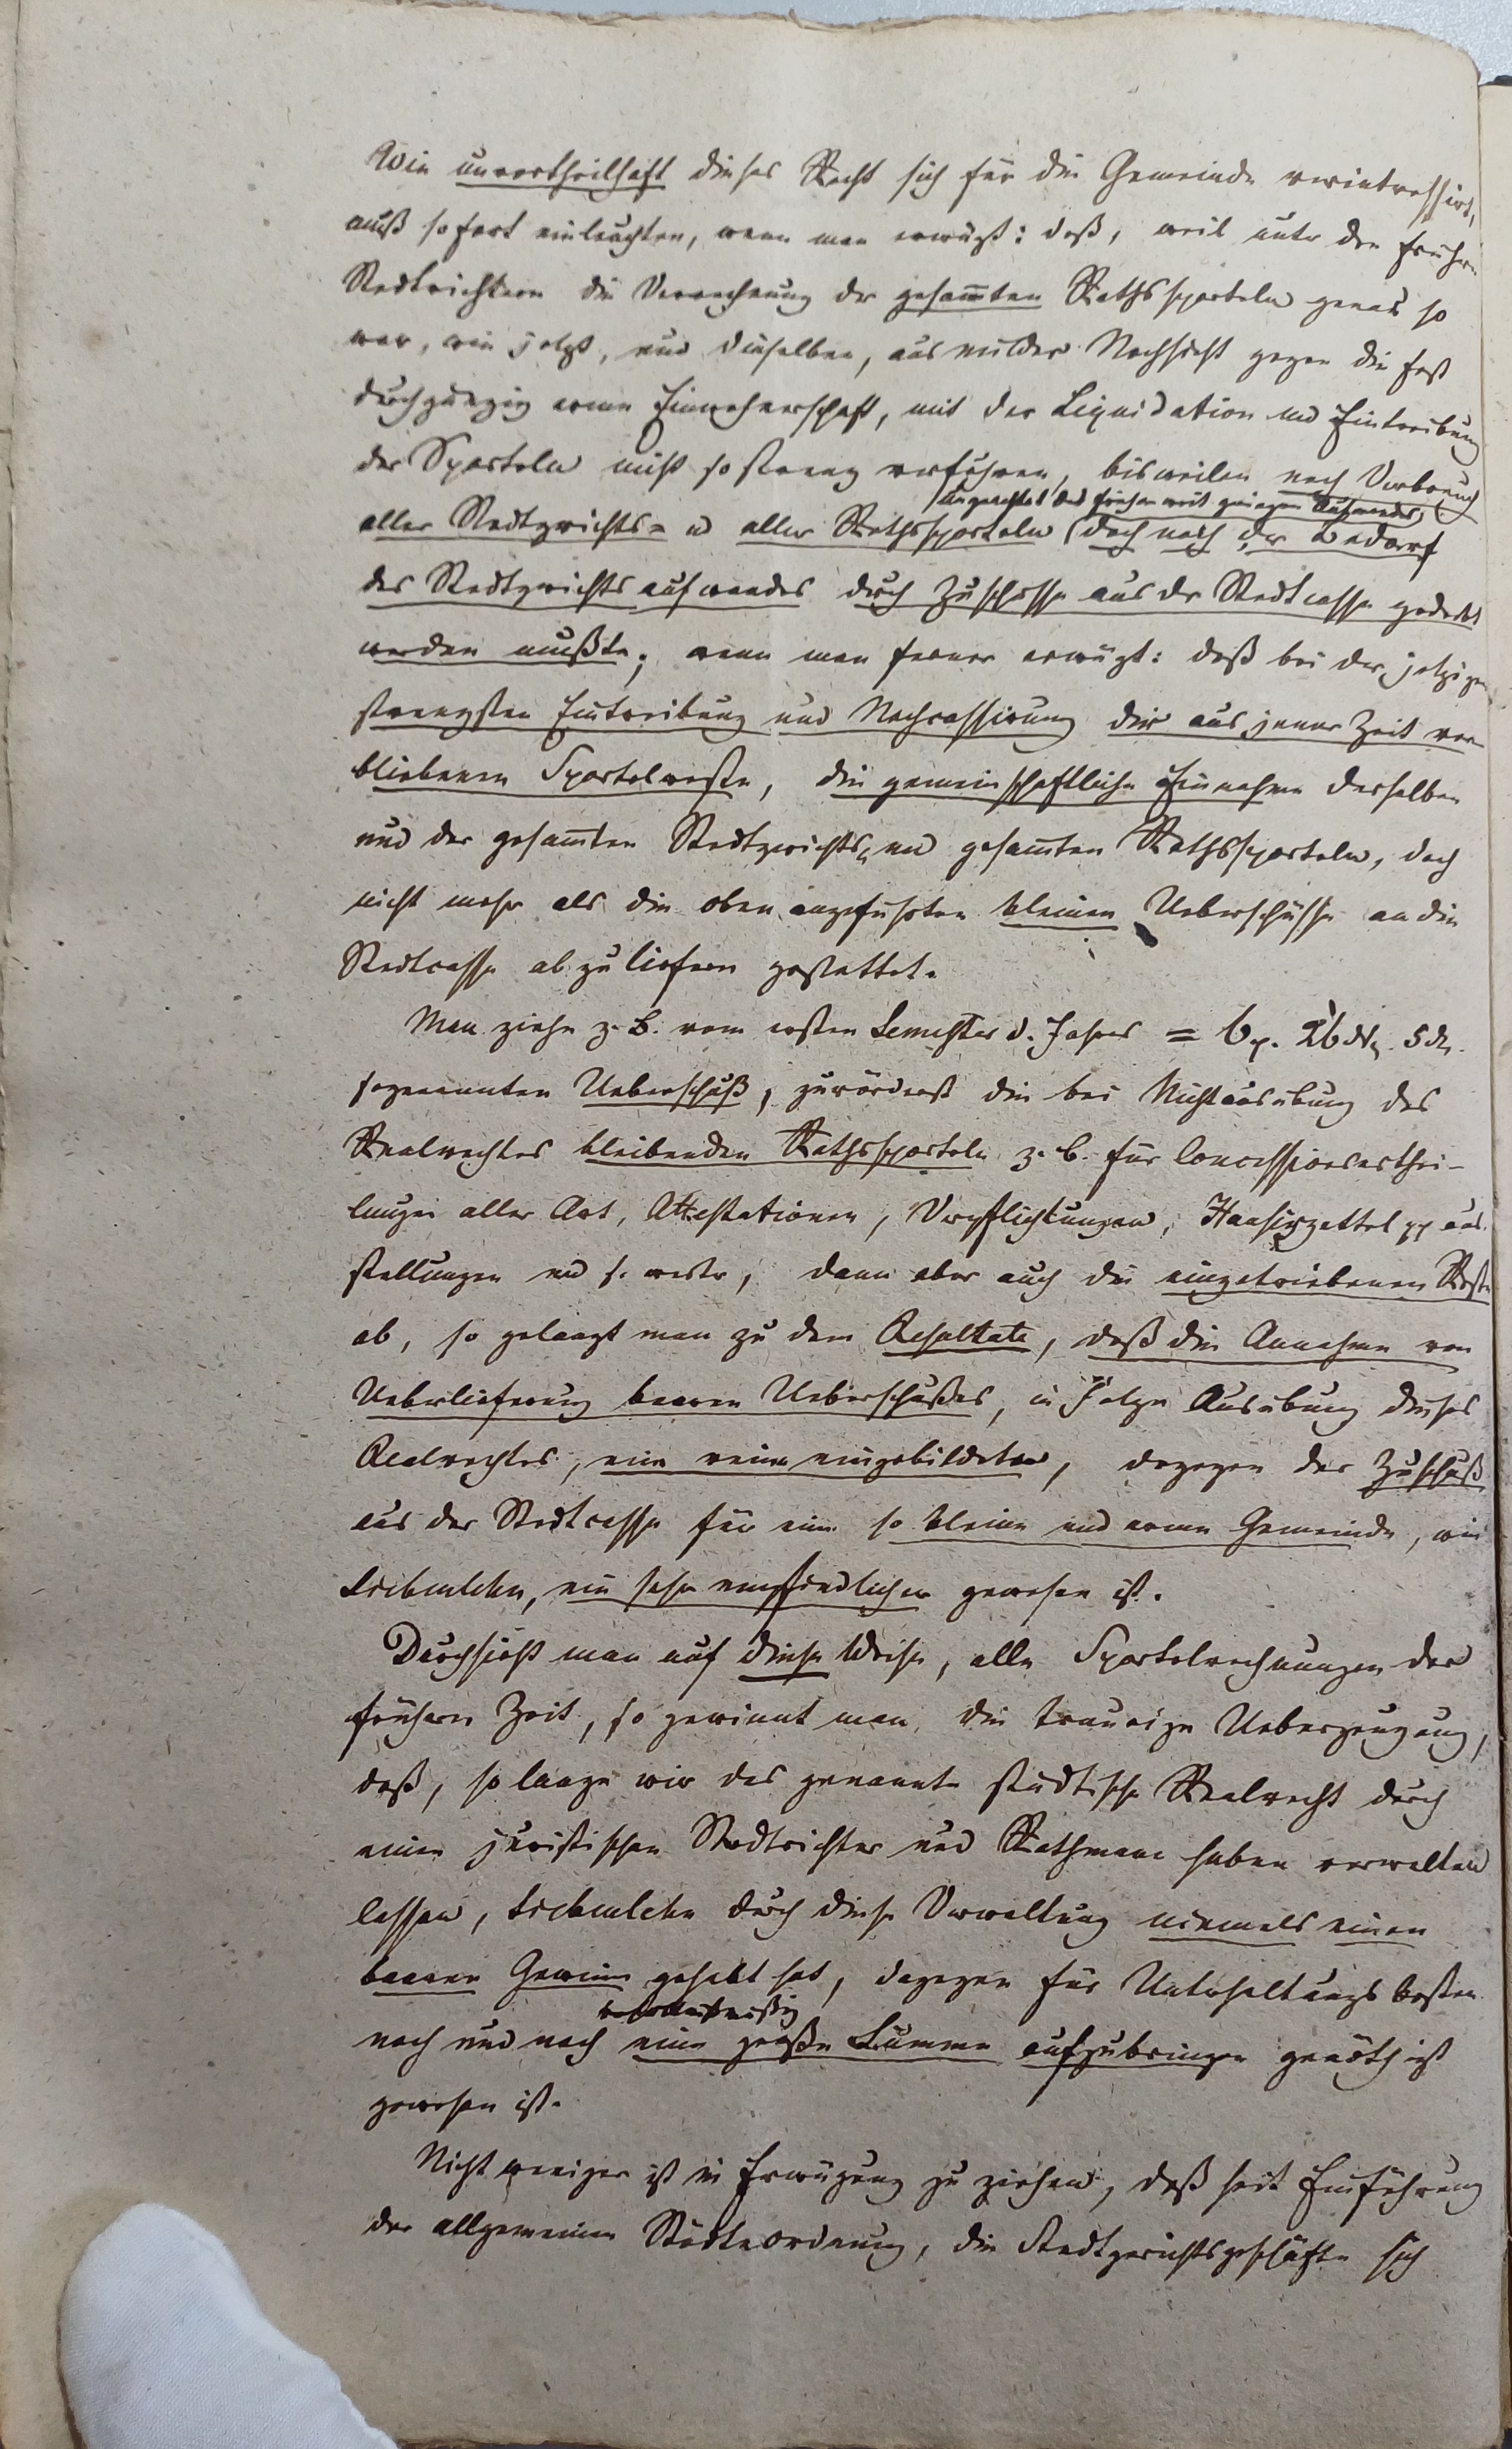 Wie unvortheilhaft dieses Recht sich für die Gemeinde verintressirt,
muß sofort einleuchten, wenn man erwägt: daß, weil unter den frühern
Stadtrichtern die Verrechnung der gesam̅ten Rathssporteln genau so
war, wie jetzt, und dieselben, aus milder Nachsicht gegen die fast
durchgängig arme Einwohnerschaft, mit der Liquidation und Eintreibung
der Sporteln nicht so streng verfuhren, bisweilen nach Verbrauch
ungeachtet des frühern weit geringern Aufwandes,
aller Stadtgerichts- u aller Rathssporteln (doch noch der Bedarf
des Stadtgerichtsaufwandes durch Zuschüsse aus der Stadtcasse gedeckt
werden mußte; wenn man ferner erwägt: daß bei der jetzigen
strengsten Eintreibung und Nachcassirung der aus jener Zeit ver-
bliebenen Sportelreste, die gemeinschaftliche Einnahme derselben
und der gesam̅ten Stadtgerichts- und gesam̅ten Rathssporteln, doch
nicht mehr als die oben angeführten kleinen Ueberschüsse an die
Stadtcasse abzuliefern gestattet.
Man ziehe z. B. vom ersten Semester d. Jahres = 26 5
sogenannten Ueberschuß, zuvörderst die bei Nichtausübung des
Realrechtes bleibenden Rathssporteln z. B. für Concessionserthei-
lungen aller Art, Attestationen, Verpflichtungen, Hausirzettel pp aus-
stellungen und s. weiter, dann aber auch die eingetriebenen Reste
ab, so gelangt man zu dem Resultate, daß die Annahme von
Ueberlieferung baaren Ueberschußes, in Folge Ausübung dieses
Realrechtes, eine reine eingebildete, dagegen der Zuschuß
aus der Stadtcasse für eine so kleine und arme Gemeinde, wie
Siebenlehn, ein sehr empfindlicher gewesen ist.
Durchsieht man auf diese Weise, alle Sportelrechnungen der
frühern Zeit, so gewinnt man die traurige Ueberzeugung,
daß, so lange wir das genannte städtische Realrecht durch
einen juristischen Stadtrichter und Rathmann haben verwalten
lassen, Siebenlehn durch diese Verwaltung niemals einen
baaren Gewinn gehabt hat, dagegen für Unterhaltungskosten
nach und nach eine große Summe aufzubringen genöthigt
gewesen ist.
Nicht weniger ist in Erwägung zu ziehen, daß seit Einführung
der allgemeinen Städteordnung, die Stadtgerichtsgeschäfte sich